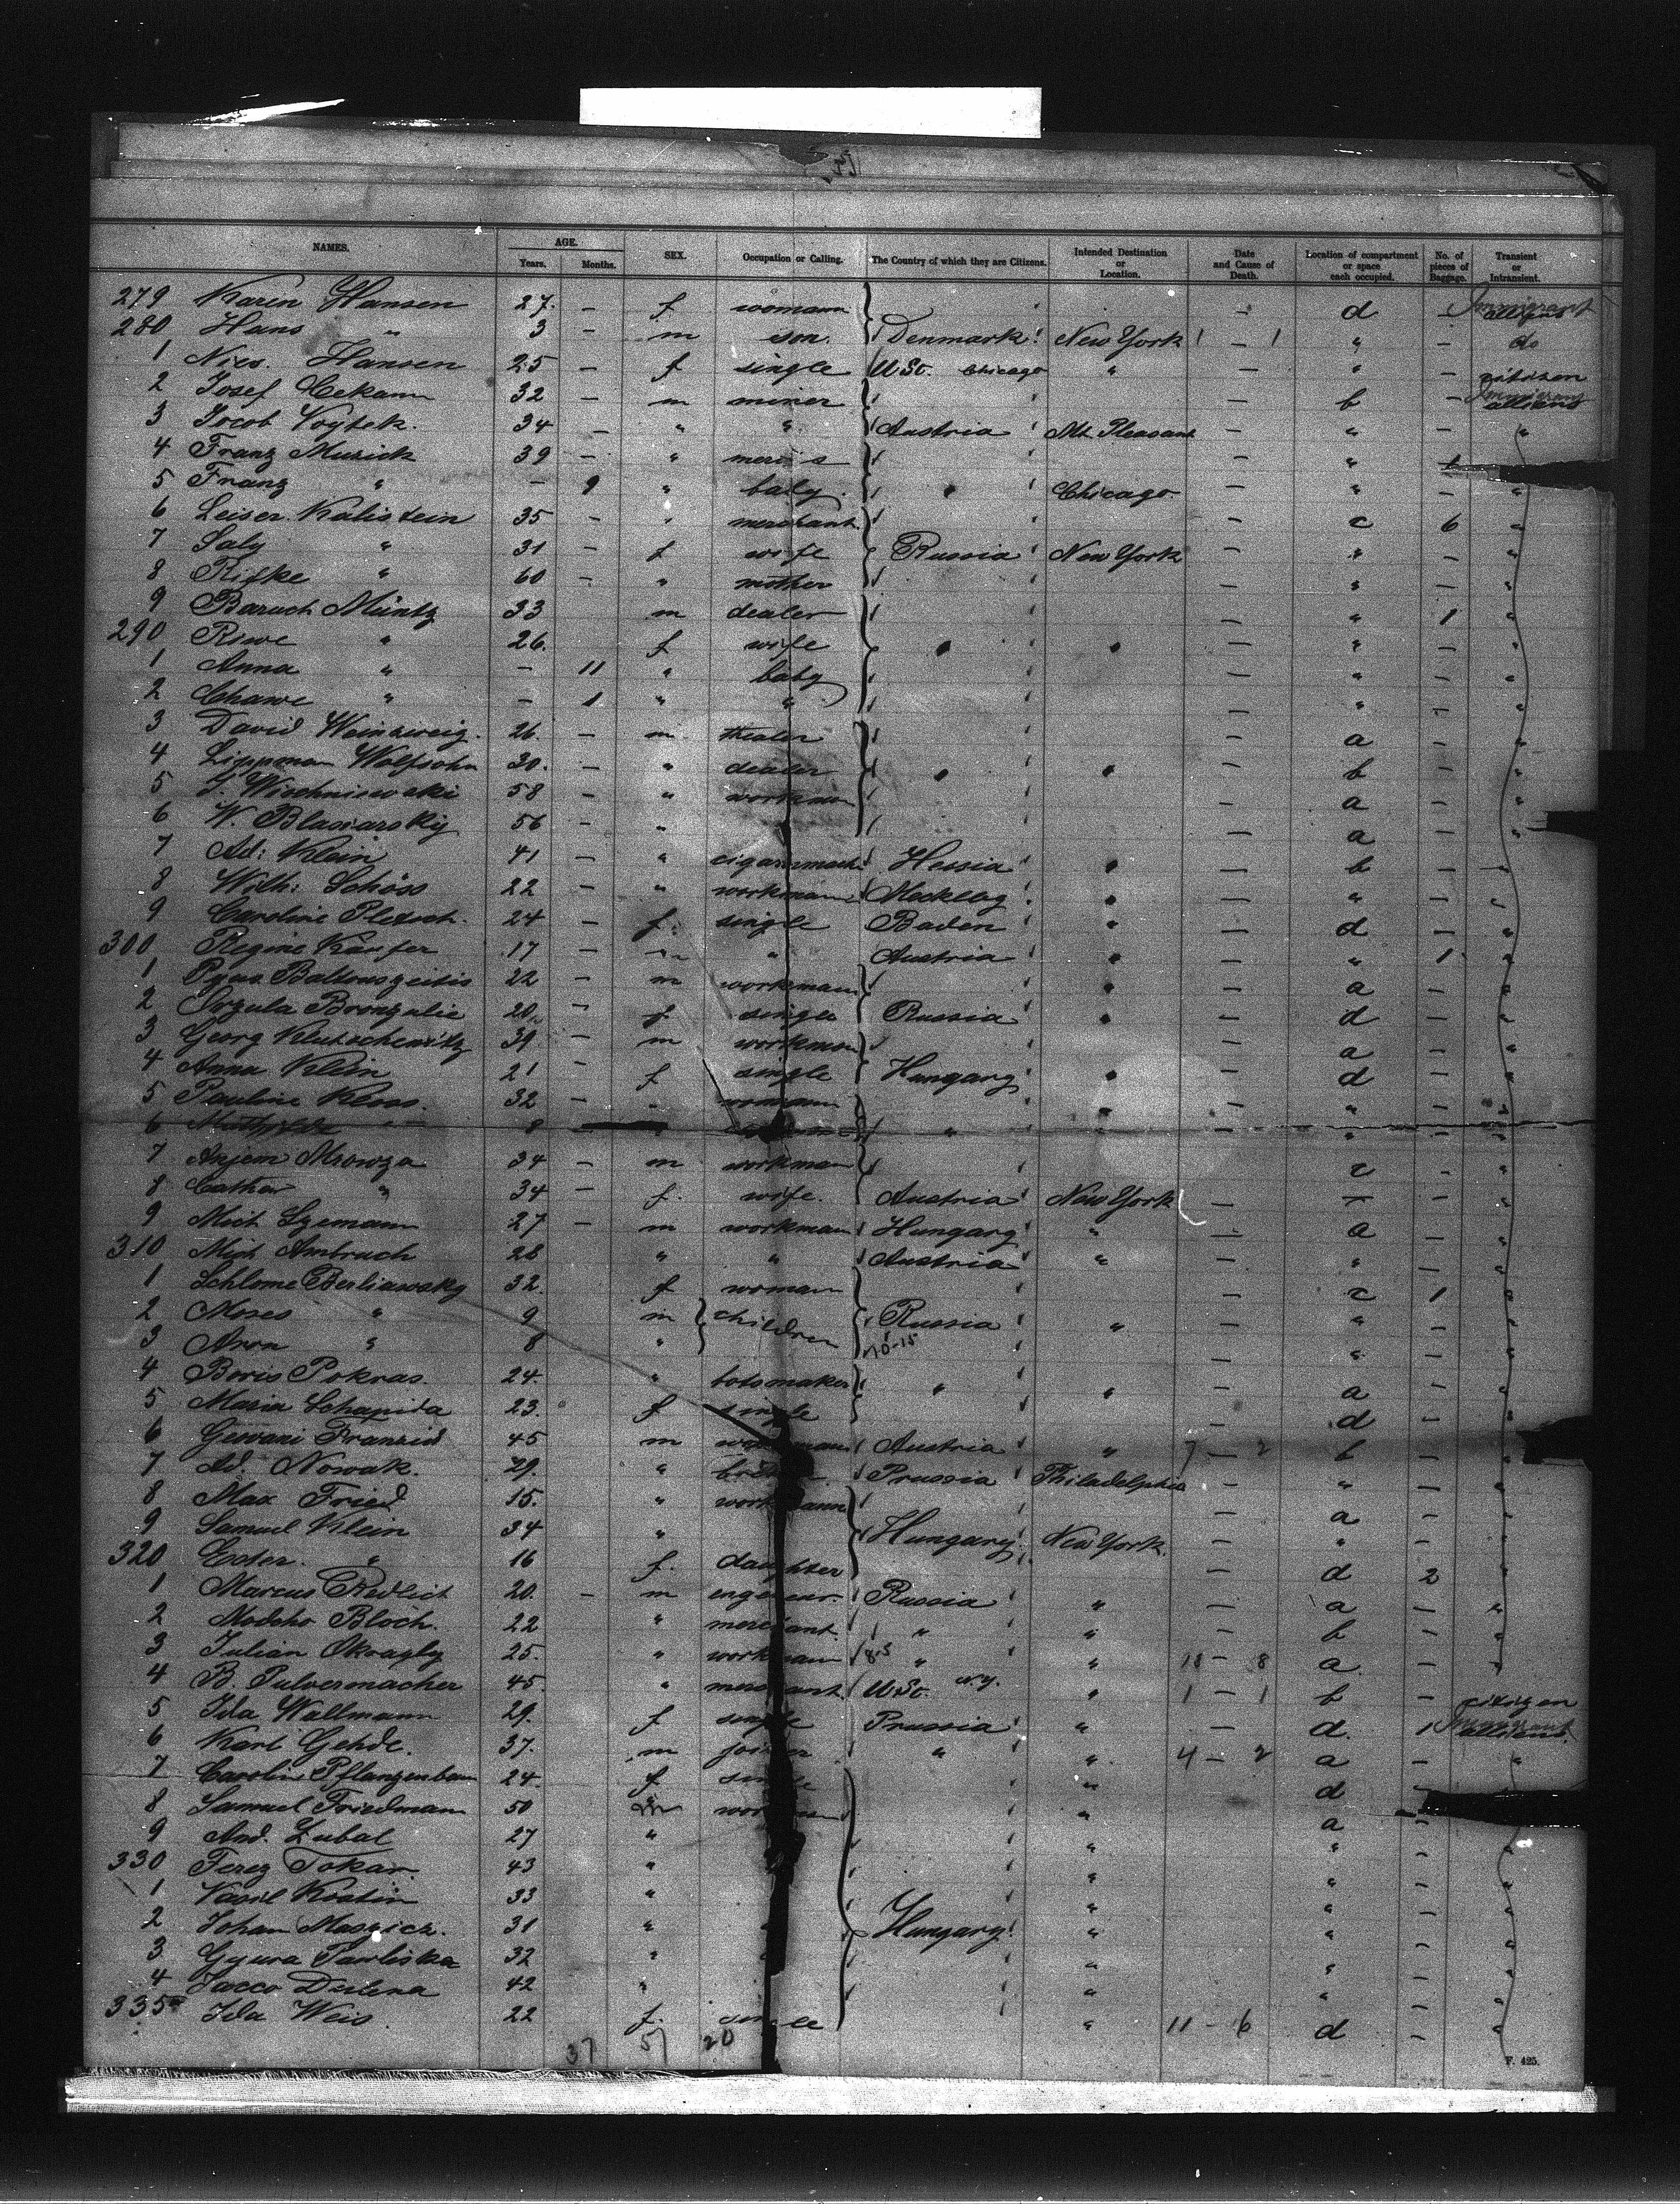 NAMES. AGE. Years. Months. SEX. Occupation or Calling. The Country of which they are Citizens. Intended Destination or Location. Date and Cause of Death. Location of compartment or space each occupied. No. of pieces of Baggage. Transient or Intransient.
279 Karen Hansen 27. – f womann – d – Immigrant
280 Hans " 3 – m son. Denmark New York 1 – 1 " – do
1 Hansen 25 – f single U St. Chicago " – " – citizen
2 Josef Cekann 32 – m miner – b – alliens
3 Jocob Voytek. 34 – " " Austria Mt. Pleasant – " – "
4 Franz Musick 39 – " – "
5 Franz " – 9 " baby. " Chicago – " – "
6 Leiser Kalistein 35 – " merchant – c 6 "
7 Saly " 31 – f wife Russia New York – " – "
8 Rifke " 60 – " mother – " – "
9 Baruch Müntz 33 m dealer – " 1 "
290 Riwe " 26. f wife " " – " – "
1 Anna " – 11 " baby – " – "
2 Chawe " – 1 " " – " – "
3 David Weinzweig. 26. – m – a – "
4 Lippman Wolfsohn 30. – " dealer " " – b – "
5 J. Wischniewski 58 – " workman – a – "
6 W. Blasiarsky 56 – " – a – "
7 Ad: Klein 41 – " Hessia " – b – "
8 Wilh: Schöss 22 – " workmann Mecklbg " – " – "
9 Caroline Pletsch. 24 – f. single Baden " – d – "
300 Regine Kaufer 17 – " " Austria " – " 1 "
1 22 – m workmann " – a – "
2 Orzula Bronzulie 20. – f single Russia " – d – "
3 Georg 39 – m workman – a – "
4 Anna Klein 21 – f single Hungary " – d – "
5 Pauline Kloss. 32 – " womann – " – "
6 Mathilde " 8 – " " – " – "
7 Mrowza 34 – m workman c – "
8 Cather " 34 – f. wife. Austria New York – – "
9 Mich Szemann 27 – m workman Hungary " – a – "
310 Mich Ambruch 28 " " Austria " – " – "
1 Schlome Berliawsky 32. f woman – c 1 "
2 Moses " 9 m children Russia " – " – "
3 Aron " 8 " – " – "
4 Boris Pokras. 24. " botsmaker " " – a – "
5 Maria Schapida 23. f single – d – "
6 45 m Austria " 7 – 2 b – "
7 Ad. Nowak. 29. " Prussia Philadelphia – " – "
8 Max Fried 15. " workmann – a – "
9 Samuel Klein 34 " Hungary New York. – " – "
320 Ester. " 16 f. daughter – d 2 "
1 Marcus Redlich 20. – m engeneur. Russia " – a – "
2 Bloch. 22 " merchant. " " – b – "
3 Julian Okragly 25. " workmann " " 18 – 8 a – "
4 B. Pulvermacher 45. " merchant U St. N.Y. " 1 – 1 b – citizen
5 Ida Wallmann 29. f single Prussia " – d. 1 Immigrant
6 Karl Gehde. 37. m joiner " " 4 – 2 a – "
7 Carolin Pflanzenbaum 24. f single " d –
8 Samuel Friedman 50 m workman " a –
9 And. Zubal 27 " " " – "
330 Ferez Tokar. 43 " " " – "
1 Vasil Kostin 33 " " " – "
2 Johan 31 " Hungary " " – "
3 Gyura Pavliska 32 " " " – "
4 42 " " " – "
335 Ida Weis. 22 f. single " 11 – 6 d – "
37 51 20
F. 425.